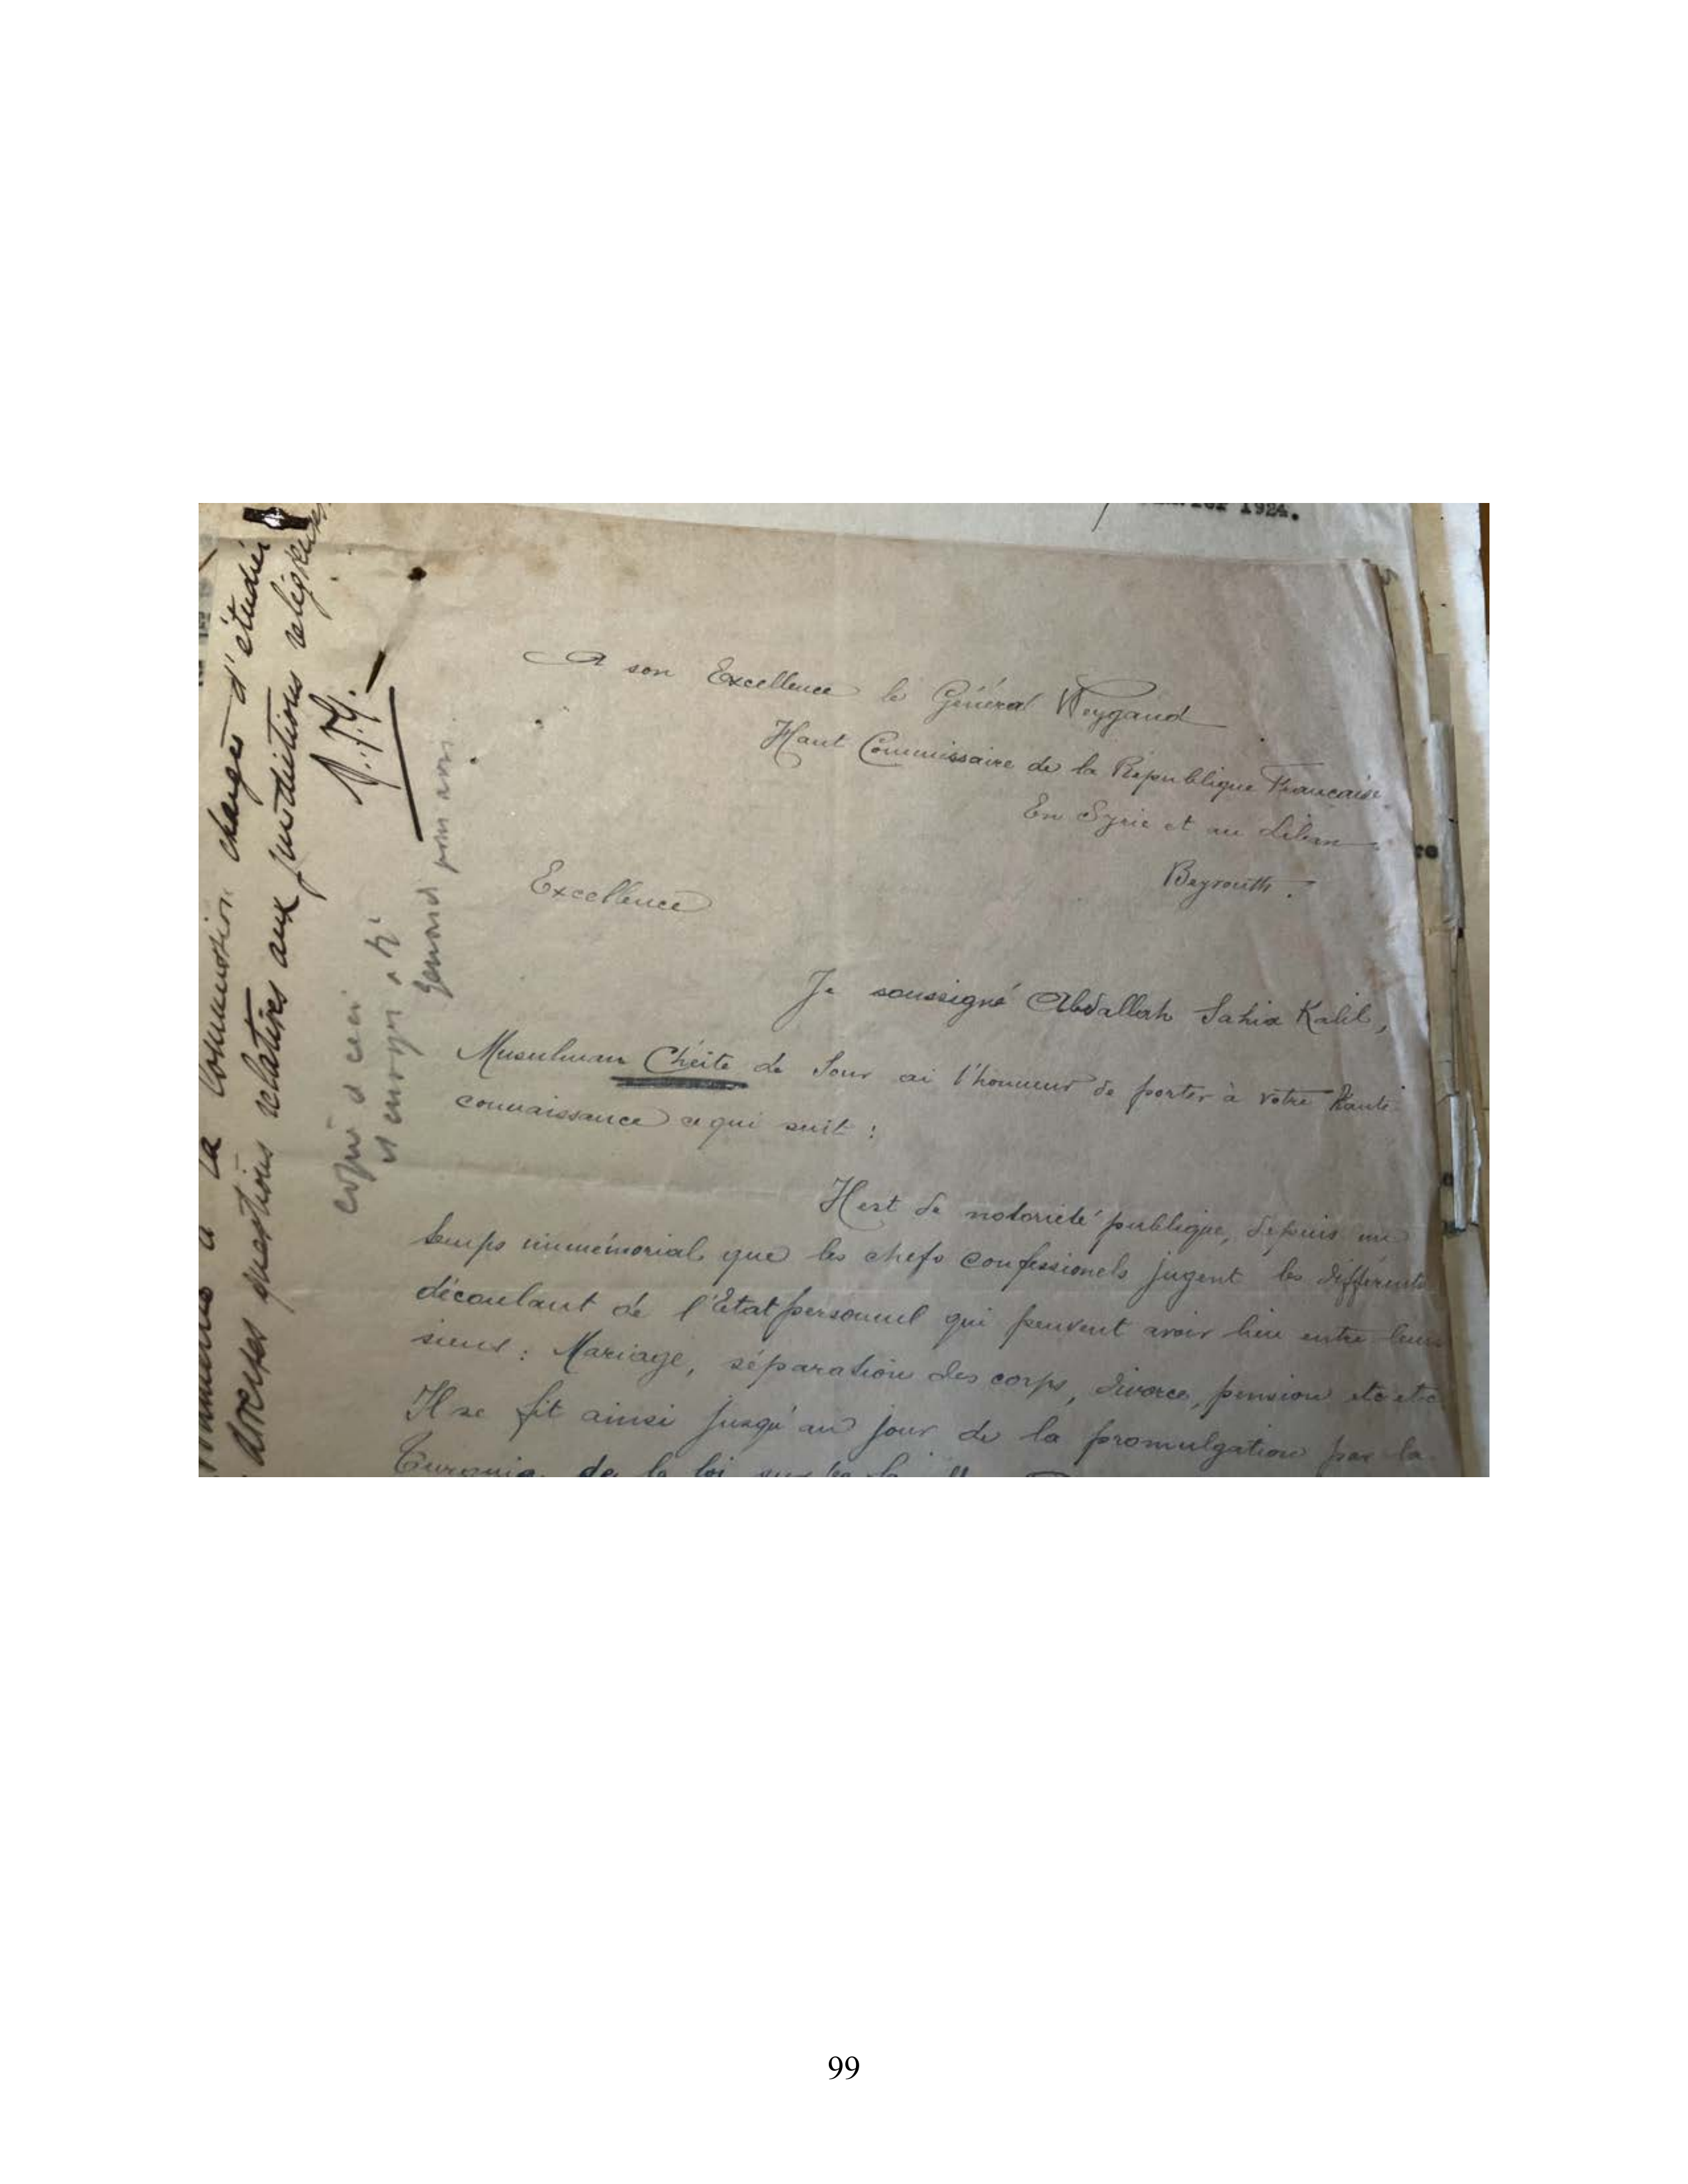 nvier 1924.
A son Excellence le Général Weygand
Haut Commissaire de la République Francaise
En Syrie et au Liban
Beyrouth.
Excellence
Je soussigné Abdallah Yahia Kalil,
Musulman Chéite de Sour ai l'honneur de porter à votre Haute
connaissance ce qui suit :
Il est de notoriété publique, depuis un
temps immémorial que les chefs confessionels jugent les différents
découlant de l'Etat personnel qui peuvent avoir lieu entre leurs
siens : Mariage, séparation des corps, divorce, pension etc etc
Il se fit ainsi jusqu'au jour de la promulgation par la
de la loi sur
à la commission chargée d'étudier
diverses questions relatives aux juridictions religieuses.
copie d ceci
et envoyer à
pour avis.
99